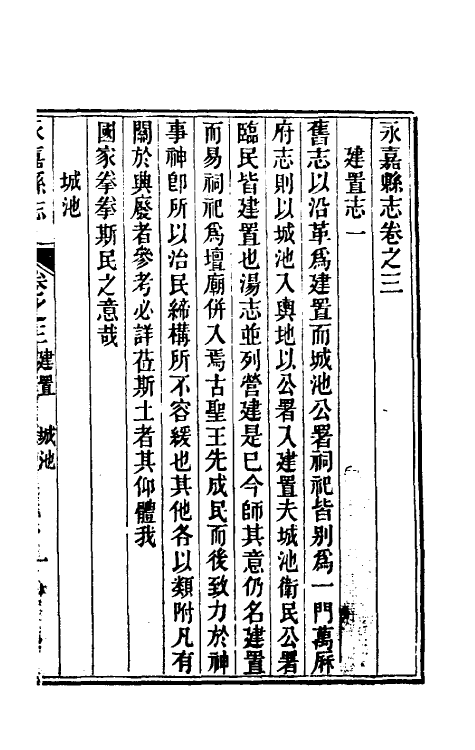 永嘉縣志卷之三
建置志一
舊志以沿革爲建置而城池公署祠祀皆別爲一門萬厤
府志則以城池入輿地以公署入建置夫城池衛民公署
臨民皆建置也湯志並列營建是已今師其意仍名建置
而易祠祀爲壇廟併入焉古聖王先成民而後致力於神
事神卽所以治民締構所不容緩也其他各以類附凡有
關於興廢者參考必詳莅斯土者其仰體我
國家拳拳斯民之意哉
城池
永嘉縣志 卷之三 建置 城池